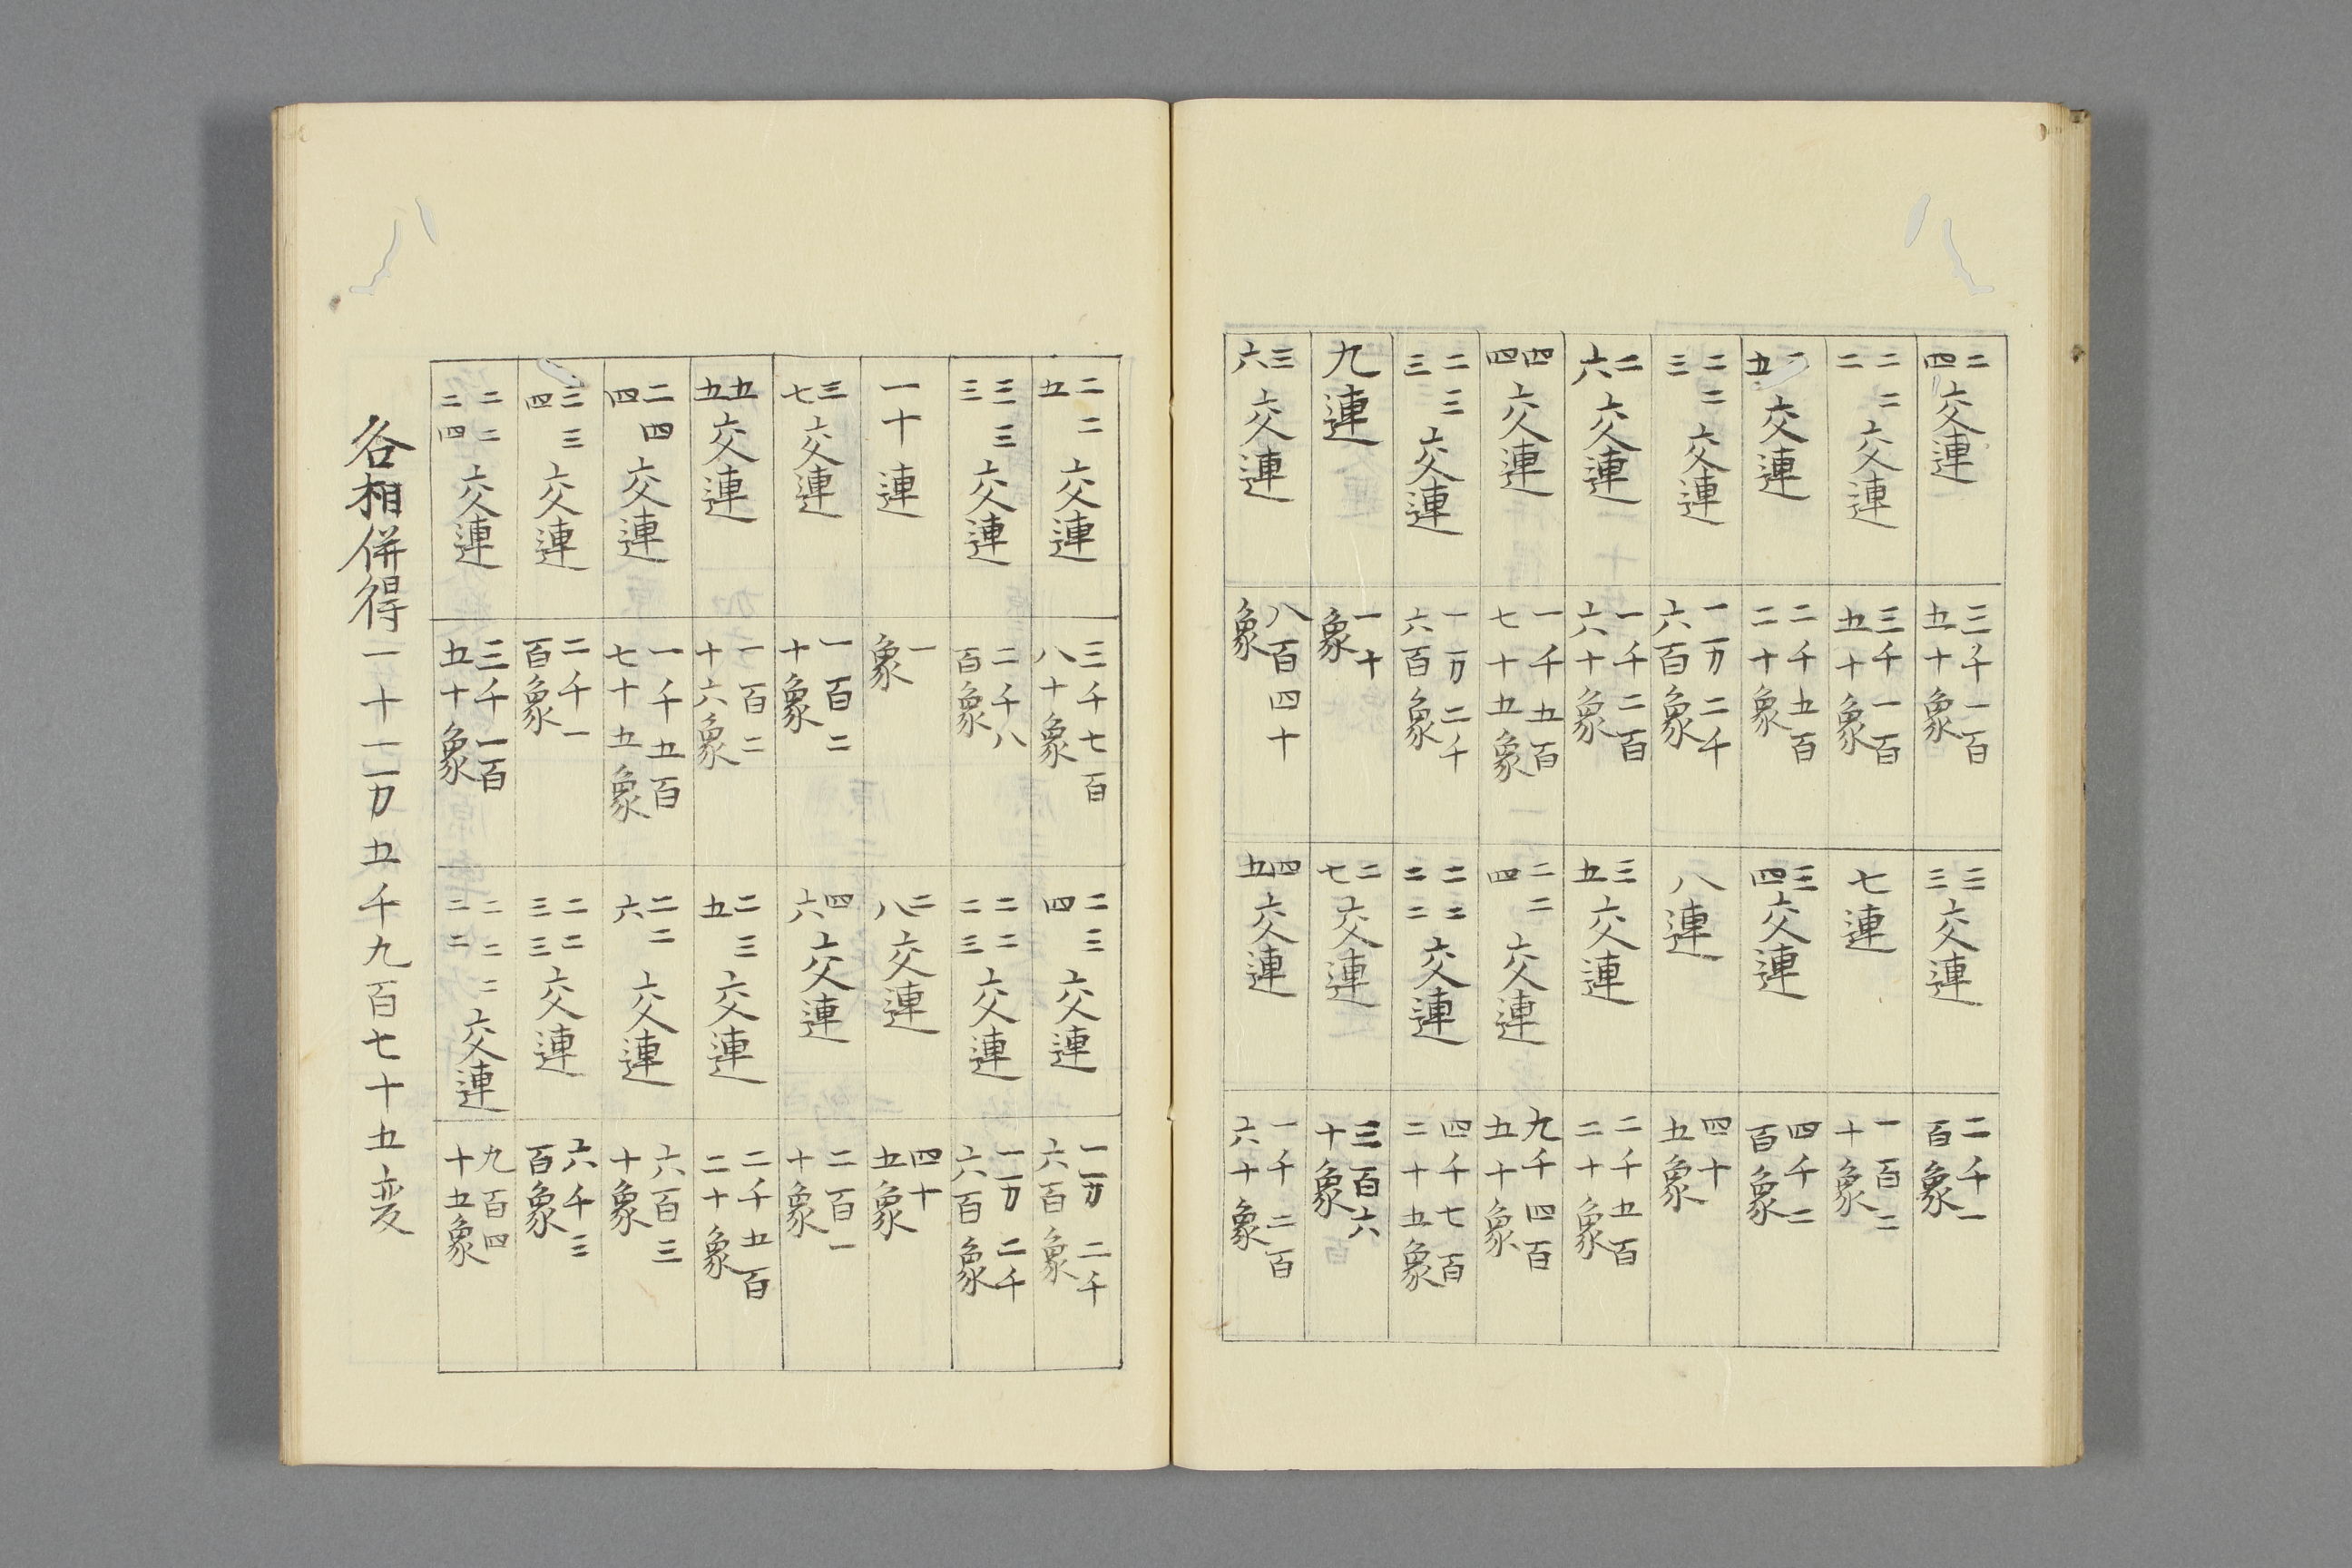 二四交連
三千一百五十象
三三交連
二千一百象
二二二交連
三千一百五十象
七連
一百二十象
二五交連
二千五百二十象
三四交連
四千二百象
二二三交連
一万二千六百象
八連
四十五象
二六交連
一千二百六十象
三五交連
二千五百二十象
四四交連
一千五百七十五象
二二四交連
九千四百五十象
二三三交連
一万二千六百象
二二二二交連
四千七百二十五象
九連
一十象
二七交連
三百六十象
三六交連
八百四十象
四五交連
一千二百六十象
二二五交連
三千七百八十象
二三四交連
一万二千六百象
三三三交連
二千八百象
二二二三交連
一万二千六百象
一十連
一象
二八交連
四十五象
三七交連
一百二十象
四六交連
二百一十象
五五交連
一百二十六象
二三五交連
二千五百二十象
二四四交連
一千五百七十五象
二二六交連
六百三十象
三三四交連
二千一百象
二二三三交連
六千三百象
二二二四交連
三千一百五十象
二二二二二交連
九百四十五象
各相併得一十一万五千九百七十五変